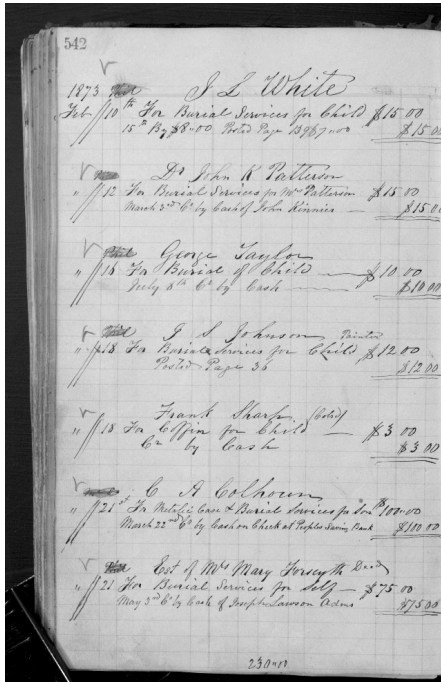 542
1873 J L White
Feb 10th For Burial Services for Child $15 00
15th By $8"00 Posted Page B9 $7"00 $15 00
Dr John K Patterson
" 12 For Burial Services for Mrs Patterson $15 00
March 3rd Cr by Cash of John Kinnier — $15 00
George Taylor
" 18 For Burial of Child — $10 00
July 8th Cr by Cash — $10 00
J S Johnson Painter
" 18 For Burial Services for Child $12 00
Posted Page 36 $12 00
Frank Sharp (Cold)
" 18 For Coffin for Child — $3 00
Cr by Cash $3 00
C A Colhoun
" 21st For Metalic Case & Burial Services for Son $100"00
March 22nd Cr by Cash on Check at Peoples Saving Bank $100 00
Est of Mrs Mary Forsyth Decd
" 21 For Burial Services for Self — $75 00
May 3rd Cr by Cash of Joseph Lawson Adms $75 00
230"00